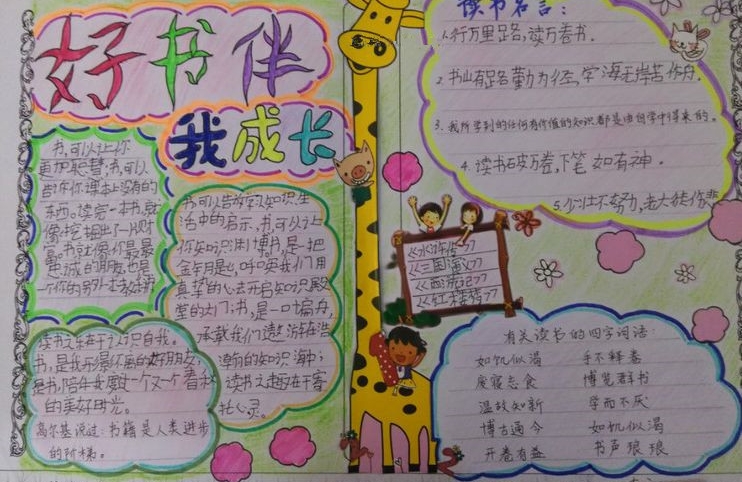 好书伴
我成长
书,可以让你
更加聪慧;书,可以
告诉你课本上没有的
东西。读完一本书,就
像挖掘出了一片财
富。书就像你最最
忠诚的朋友,也是
书,可以告诉你知识,生
活中的启示,书,可以让
你知识渊博。书,是一把
金钥匙,呼唤我们用
真挚的心去开启知识殿
堂的大门;书,是一叶扁舟,
承载我们遨游在浩
瀚的知识海中;
读书之趣在于寄
托心灵。
读书之乐在于认识自我。
书,是我形影不离的好朋友,
是书,陪伴我度过一个又一个春秋
的美好时光。
高尔基说过:书籍是人类进步
的阶梯。
读书名言:
1.行万里路,读万卷书.
2.书山有路勤为径,学海无崖苦作舟.
3.我所学到的任何有价值的知识都是由自学中得来的。
4.读书破万卷,下笔如有神.
5.少壮不努力,老大徒伤悲
《水浒传》
《三国演义》
《西游记》
《红楼梦》
有关读书的四字词语:
如饥似渴 手不释卷
废寝忘食 博览群书
温故知新 学而不厌
博古通今 如饥似渴
开卷有益 书声琅琅